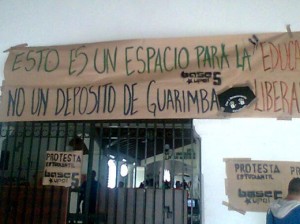 ESTO ES UN ESPACIO PARA LA "EDUCA
BASE 5
NO UN DEPOSITO DE GUARIMBA LIBERA
PROTESTA
ESTUDIANTIL
BASE 5
PROTESTA
ESTUDIANTIL
BASE 5